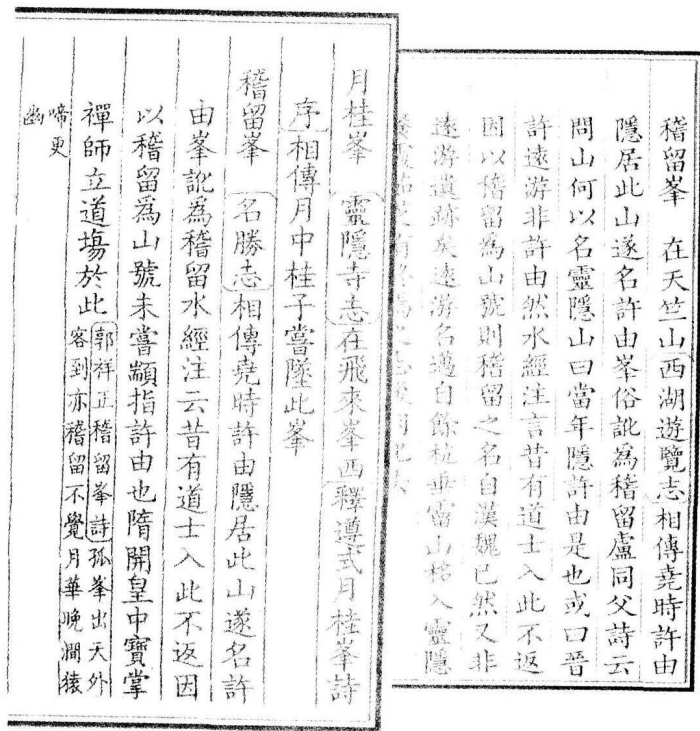 稽留峯 在天竺山西湖遊覽志相傳堯時許由
隱居此山遂名許由峯俗訛爲稽留盧同父詩云
問山何以名靈隱山曰當年隱許由是也或曰晉
許遠游非許由然水經注言昔有道士入此不返
因以稽留爲山號則稽留之名自漢魏已然又非
遠游遺跡矣遠游名邁自餘杭垂霤山移入靈隱
月桂峯 靈隱寺志在飛來峯西釋遵式月桂峯詩
序相傳月中桂子嘗墜此峯
稽留峯 名勝志相傳堯時許由隱居此山遂名許
由峯訛爲稽留水經注云昔有道士入此不返因
以稽留爲山號未嘗顓指許由也隋開皇中寶掌
禪師立道塲於此
郭祥正稽留峯詩孤峯出天外
客到亦稽留不覺月華晚澗猿
啼更
幽